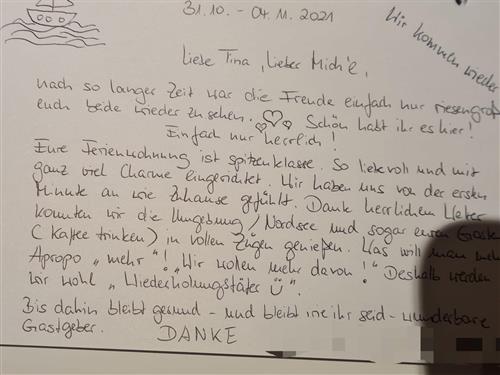 31.10. - 04.11.2021
Wir kommen wieder
Liebe Tina, lieber Mich'l,
nach so langer Zeit war die Freude einfach nur riesengroß
euch beide wieder zu sehen. Schön habt ihr es hier!
Einfach nur herrlich!
Eure Ferienwohnung ist spitzenklasse. So liebevoll und mit
ganz viel Charme eingerichtet. Wir haben uns von der ersten
Minute an wie Zuhause gefühlt. Dank herrlichem Wetter
konnten wir die Umgebung / Nordsee und sogar euren Garten
(Kaffee trinken) in vollen Zügen genießen. Was will man mehr
Apropo "mehr"! "Wir wollen mehr davon!" Deshalb werden
wir wohl "Wiederholungstäter ü".
Bis dahin bleibt gesund - und bleibt wie ihr seid - wunderbare
Gastgeber. DANKE